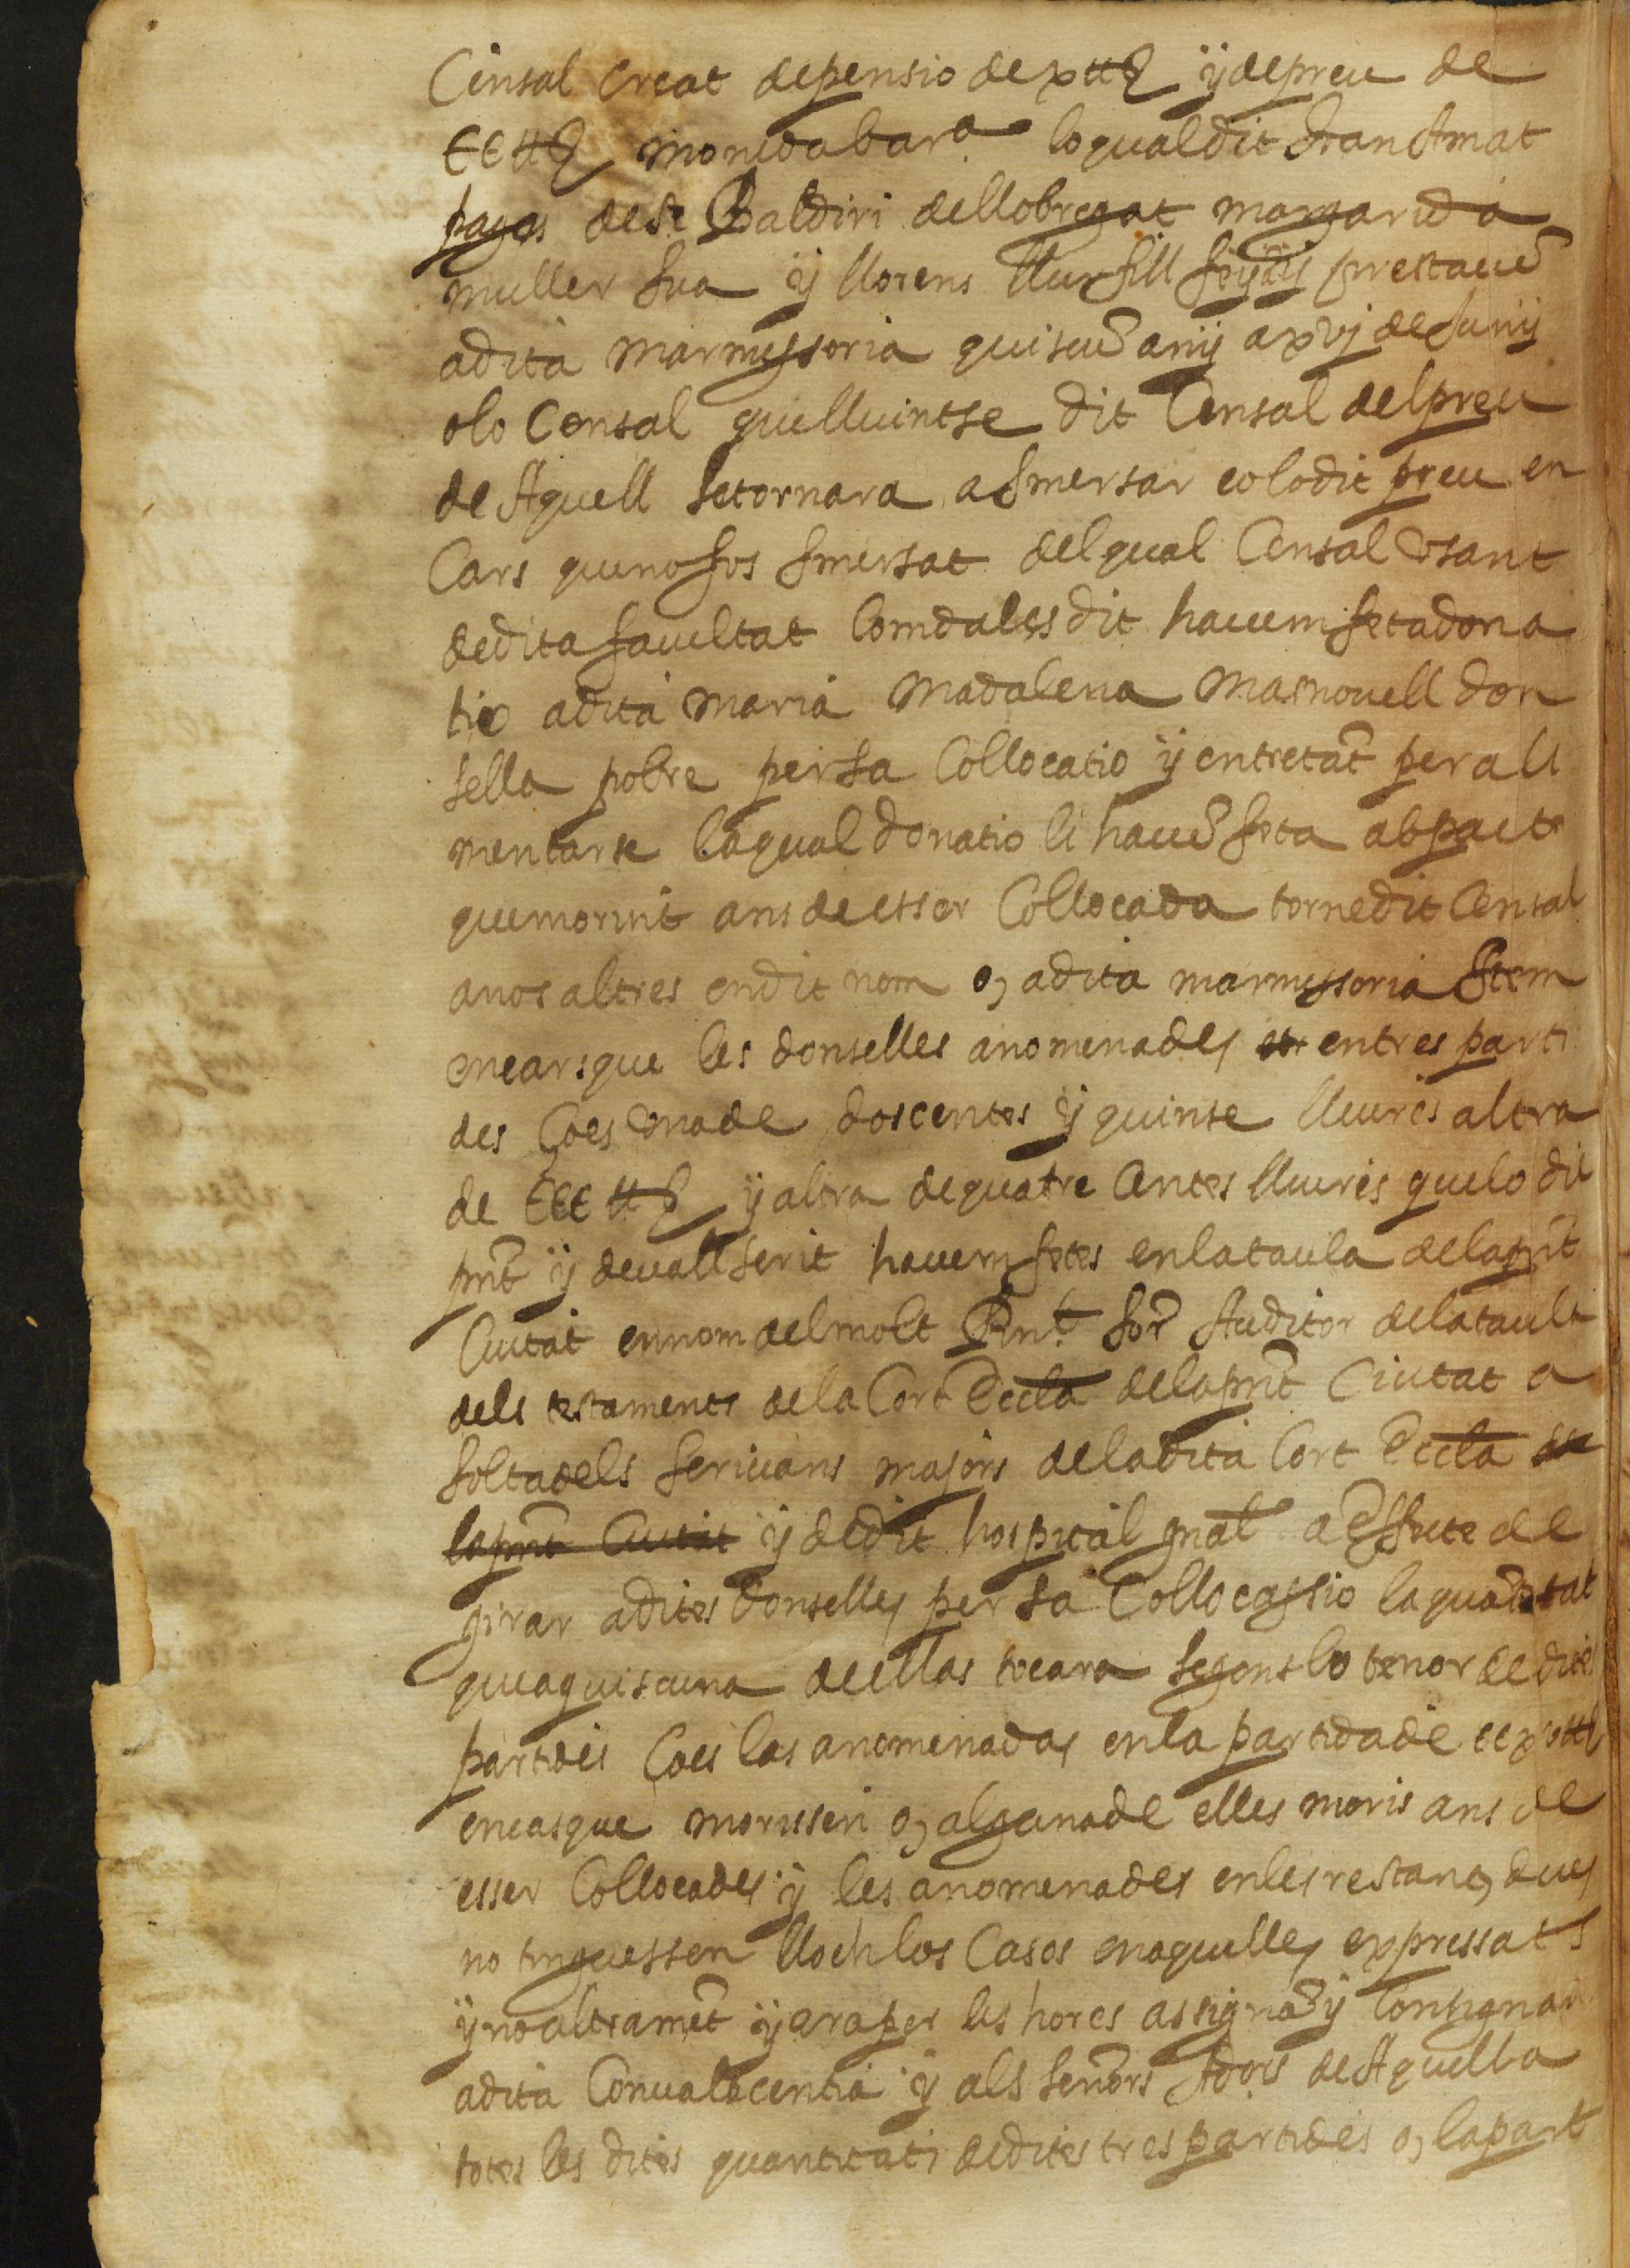 Censal creat de pensio de x ll s y de preu de
CC ll s moneda bar.ª lo qual dit Joan Amat
pages de St Baldiri de Llobregat margarida
muller sua y llorens llur fill prestauē
a dita marmessoria quiscū any a xvj de Juny
o lo Censal que lluintse dit Censal del preu
de Aquell se tornara a Smersar o lo dit preu en
Cars que no fos Smersat del qual Censal Vsant
de dita facultat Com dalt es dit hauem feta dona
tio a dita maria Madalena Masnouell don
sella pobre per sa Collocatio y entretāt per ali
mentarse la qual donatio li hauē feta ab pacte
que morint ans de esser Collocada torne dit Censal
a nosaltres en dit nom o, a dita marmessoria Item
en cars que les donselles anomenades en tres parti
des Ço es Vna de doscentes y quinse lliures altra
de CCC ll s y altra de quatre Centes lliures que lo dit
pnt y deuall scrit hauem fetes en la taula de la pnt
Ciutat en nom del molt Rnt Sor Auditor de la taula
dels testaments de la Cort Eccla de la pnt Ciutat a
solta dels scriuans majors de la dita Cort Eccla de
la pnt Ciutat y de dit hospital gnal a effecte de
girar a dites donselles per sa Collocassio la quātitat
que a quiscuna de ellas tocara segons lo tenor de dites
partides Ço es las anomenadas en la partida de CCxv ll s
en cas que morissen o, alguna de elles moris ans de
esser Collocades y les anomenades en les restans dues
no tinguessen lloch los Casos en aquelles expressats
y no altramēt y ara per les hores assignā y Consignam
a dita Conualecentia y als señors Adors de Aquella
totes les dites quantitats de dites tres partides o, la part